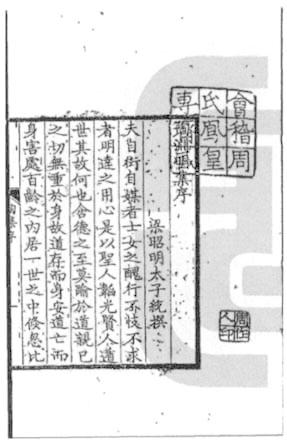 會稽周
氏鳳皇
專
陶淵明集序
梁昭明太子統撰
夫自衒自媒者士女之醜行不忮不求
者明達之用心是以聖人韜光賢人遁
世其故何也含德之至莫踰於道親己
之切無重於身故道存而身安道亡而
身害處百齡之內居一世之中倏忽比
周作
人印